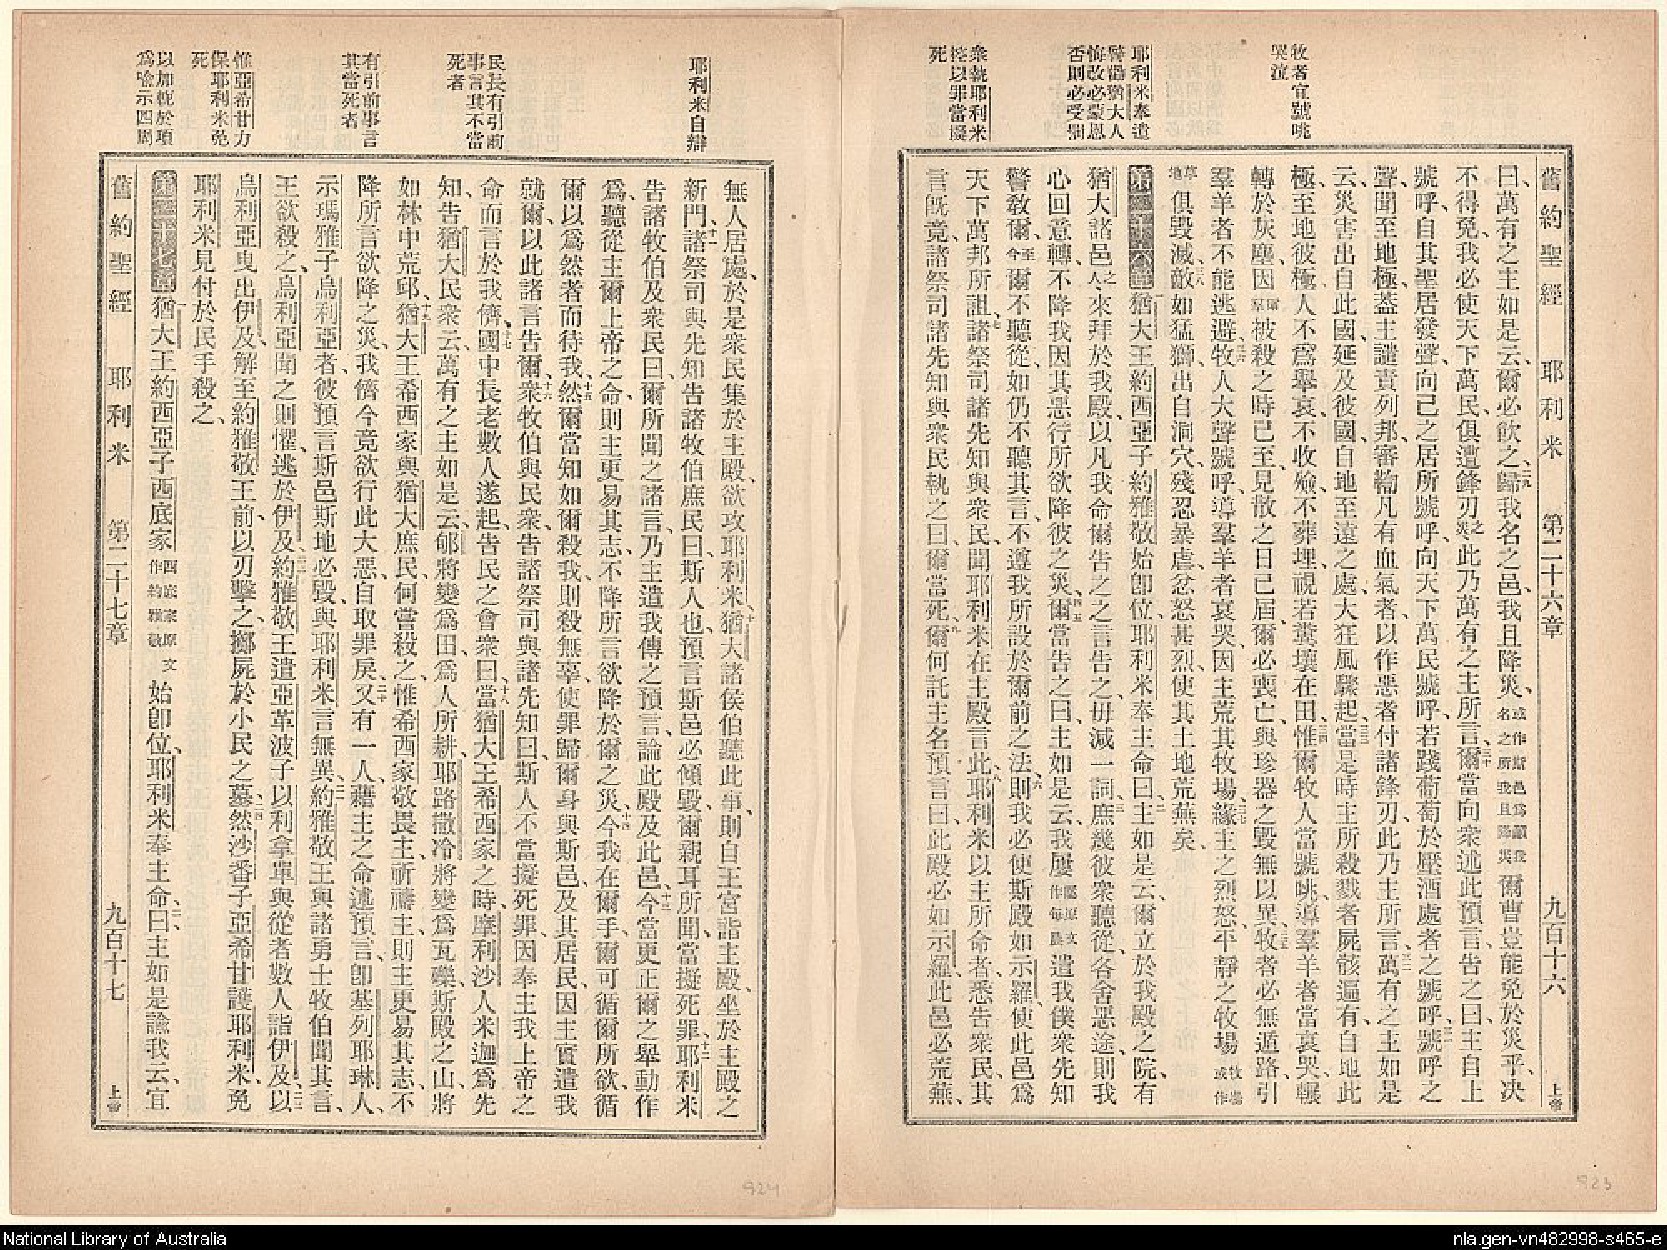 舊約聖經 耶利米 第二十六章 九百十六 上帝
牧者宜號咷
哭泣
耶利米奉遣
警誡猶大人
悔改必蒙恩
否則必受罰
衆執耶利米
控以罪當擬
死
曰、萬有之主如是云、爾必飲之、二九歸我名之邑、我且降災、或作斯邑爲歸我名之所我且降災爾曹豈能免於災乎、決
不得免、我必使天下萬民、俱遭鋒刃之災此乃萬有之主所言、三十爾當向衆述此預言、告之曰、主自上
號呼、自其聖居發聲、向己之居所號呼、向天下萬民號呼、若踐葡萄於壓酒處者之號呼、三一號呼之
聲、聞至地極、蓋主譴責列邦、審鞫凡有血氣者、以作惡者付諸鋒刃、此乃主所言、三二萬有之主如是
云、災害出自此國、延及彼國、自地至遠之處、大狂風驟起、三三當是時、主所殺戮者、屍骸遍有、自地此
極、至地彼極、人不爲舉哀、不收殮、不葬埋、視若糞壤在田、三四惟爾牧人當號咷、導羣羊者當哀哭、輾
轉於灰塵、因爾衆被殺之時已至、見散之日已屆、爾必喪亡、與珍器之毀無以異、三五牧者必無遁路、引
羣羊者不能逃避、三六牧人大聲號呼、導羣羊者哀哭、因主荒其牧場、三七緣主之烈怒、平靜之牧場牧場或作
草地俱毀滅、三八敵如猛獅、出自洞穴、殘忍暴虐、忿怒甚烈、使其土地荒蕪矣、
第二十六章 一猶大王約西亞子約雅敬始卽位、耶利米奉主命曰、二主如是云、爾立於我殿之院、有
猶大諸邑之人來拜於我殿、以凡我命爾告之之言告之、毋減一詞、三庶幾彼衆聽從、各舍惡途、則我
心回意轉、不降我因其惡行所欲降彼之災、四五爾當告之曰、主如是云、我屢屢原文作每晨遣我僕衆先知
警敎爾、至今爾不聽從、如仍不聽其言、不遵我所設於爾前之法、六則我必使斯殿如示羅、使此邑爲
天下萬邦所詛、七諸祭司諸先知與衆民、聞耶利米在主殿言此、八耶利米以主所命者、悉告衆民、其
言旣竟、諸祭司諸先知與衆民執之曰、爾當死、九爾何託主名預言曰、此殿必如示羅、此邑必荒蕪、
耶利米自辯
民長有引前
事言其不當
死者
有引前事言
其當死者
惟亞希甘力
保耶利米免
死
以加軛於項
爲喩示四周
無人居處、於是衆民集於主殿、欲攻耶利米、十猶大諸侯伯聽此事、則自王宮詣主殿、坐於主殿之
新門、十一諸祭司與先知告諸牧伯庶民曰、斯人也、預言斯邑必傾毀、爾親耳所聞、當擬死罪、十二耶利米
告諸牧伯及衆民曰、爾所聞之諸言、乃主遣我傳之預言、論此殿及此邑、十三今當更正爾之舉動作
爲、聽從主爾上帝之命、則主更易其志、不降所言欲降於爾之災、十四今我在爾手、爾可循爾所欲、循
爾以爲然者而待我、十五然爾當知、如爾殺我、則殺無辜、使罪歸爾身、與斯邑、及其居民、因主實遣我
就爾、以此諸言告爾、十六衆牧伯與民衆、告諸祭司與諸先知曰、斯人不當擬死罪、因奉主我上帝之
命而言於我儕、十七國中長老數人遂起、告民之會衆曰、十八當猶大王希西家之時、摩利沙人米迦爲先
知、告猶大民衆云、萬有之主如是云、郇將變爲田、爲人所耕、耶路撒冷將變爲瓦礫、斯殿之山、將
如林中荒邱、十九猶大王希西家與猶大庶民、何嘗殺之、惟希西家敬畏主、祈禱主、則主更易其志、不
降所言欲降之災、我儕今竟欲行此大惡、自取罪戾、二十又有一人、藉主之命述預言、卽基列耶琳人、
示瑪雅子烏利亞者、彼預言斯邑斯地必毀、與耶利米言無異、二一約雅敬王與諸勇士牧伯聞其言、
王欲殺之、烏利亞聞之則懼、逃於伊及、二二約雅敬王遣亞革波子以利拿單與從者數人詣伊及、二三以
烏利亞曳出伊及、解至約雅敬王前、以刃擊之、擲屍於小民之墓、二四然沙番子亞希甘護耶利米、免
耶利米見付於民手殺之、
第二十七章 一猶大王約西亞子西底家西底家原文作約雅敬始卽位、耶利米奉主命曰、二主如是諭我云、宜
舊約聖經 耶利米 第二十七章 九百十七 上帝
924
923
National Library of Australia
nla.gen-vn482998-s465-e